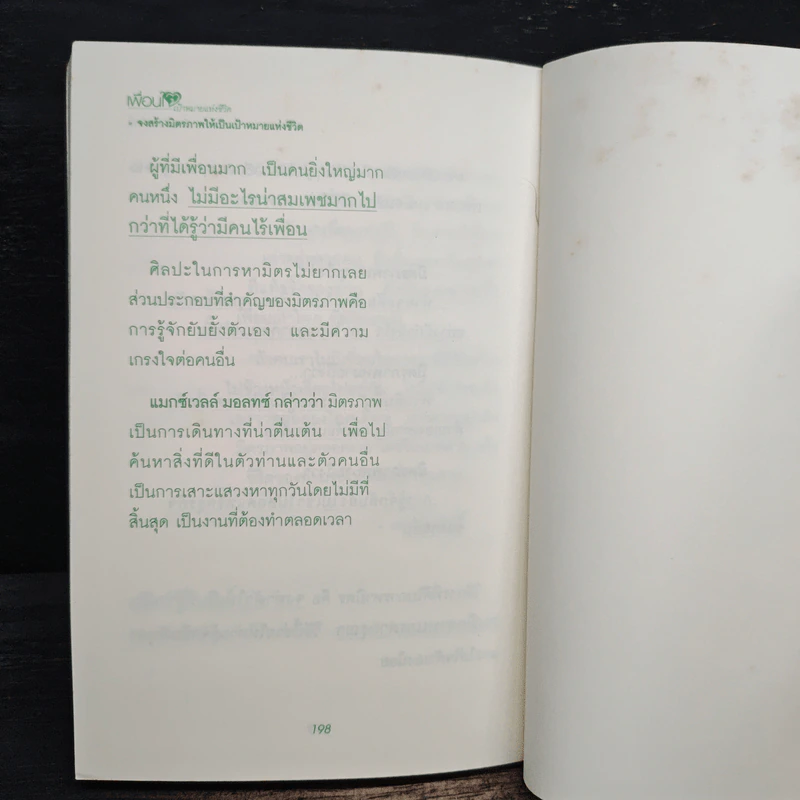 เพื่อนแท้
เป้าหมายแห่งชีวิต
จงสร้างมิตรภาพให้เป็นเป้าหมายแห่งชีวิต
ผู้ที่มีเพื่อนมาก เป็นคนยิ่งใหญ่มาก
คนหนึ่ง ไม่มีอะไรน่าสมเพชมากไป
กว่าที่ได้รู้ว่ามีคนไร้เพื่อน
ศิลปะในการหามิตรไม่ยากเลย
ส่วนประกอบที่สำคัญของมิตรภาพคือ
การรู้จักยับยั้งตัวเอง และมีความ
เกรงใจต่อคนอื่น
แมกซ์เวลล์ มอลทซ์ กล่าวว่า มิตรภาพ
เป็นการเดินทางที่น่าตื่นเต้น เพื่อไป
ค้นหาสิ่งที่ดีในตัวท่านและตัวคนอื่น
เป็นการเสาะแสวงหาทุกวันโดยไม่มีที่
สิ้นสุด เป็นงานที่ต้องทำตลอดเวลา
198